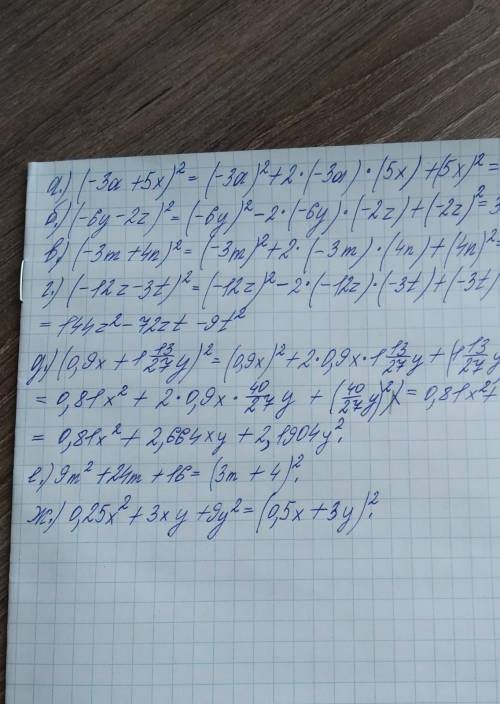 а.) (-3a + 5x)² = (-3a)² + 2·(-3a)·(5x) + (5x)² =
б.) (-6y - 2z)² = (-6y)² - 2·(-6y)·(-2z) + (-2z)² = 3
в.) (-3m + 4n)² = (-3m)² + 2·(-3m)·(4n) + (4n)²
г.) (-12z - 3t)² = (-12z)² - 2·(-12z)·(-3t) + (-3t)
= 144z² - 72zt - 9t²
д.) (0,9x + 1 13/27 y)² = (0,9x)² + 2·0,9x·1 13/27 y + (1 13/27 y
= 0,81x² + 2·0,9x·40/27 y + (40/27 y)² = 0,81x² +
= 0,81x² + 2,664xy + 2,1904y².
е.) 9m² + 24m + 16 = (3m + 4)².
ж.) 0,25x² + 3xy + 9y² = (0,5x + 3y)².